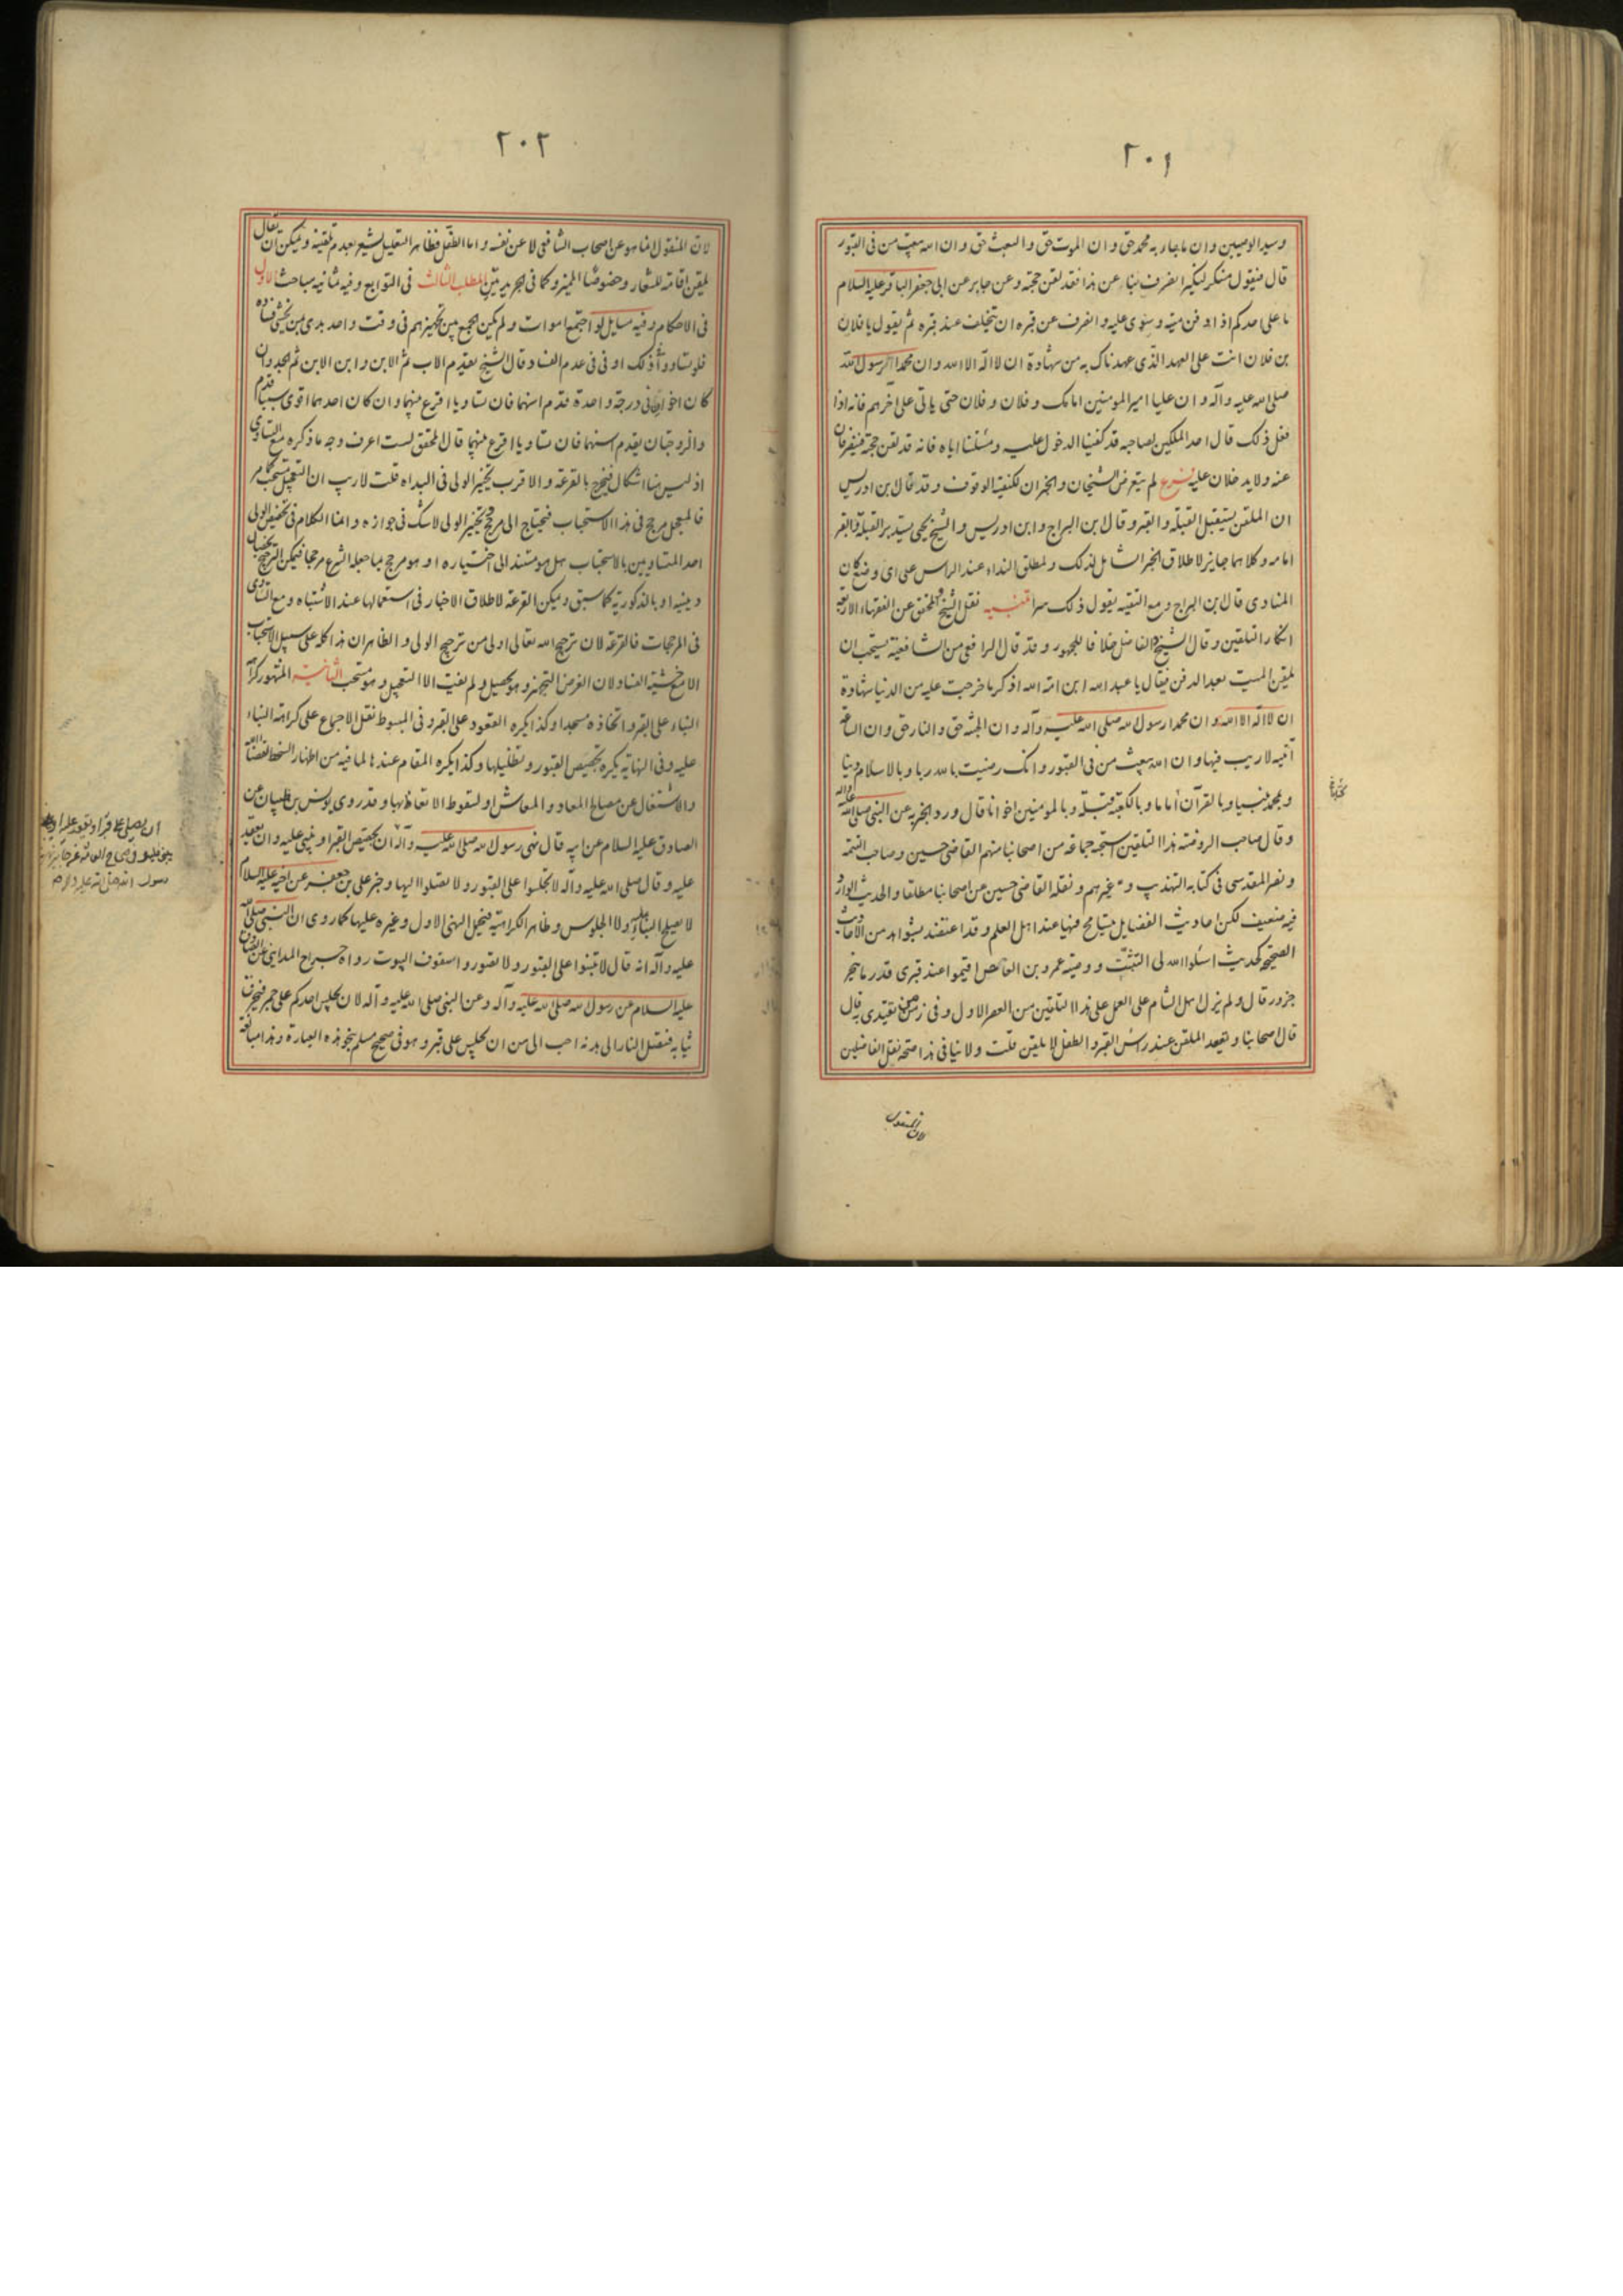 ٢٠١
وسيد الوصيين وان ما جاء به محمد حق وان الموت حق والبعث حق وان الله يبعث من في القبور
قال فيقول منكر لنكير انصرف بنا عن هذا فقد لقن حجته وعن جابر عن ابي جعفر الباقر عليه السلام
ما على احدكم اذا دفن ميته وسوى عليه وانصرف عن قبره ان يتخلف عند قبره ثم يقول يا فلان
بن فلان انت على العهد الذي عهدناك به من شهادة ان لا اله الا الله وان محمدا رسول الله
صلى الله عليه وآله وان عليا امير المومنين امامك وفلان وفلان حتى ياتي على آخرهم فانه اذا
فعل ذلك قال احد الملكين لصاحبه قد كفينا الدخول عليه ومسئلتنا اياه فانه قد لقن حجته فينصرفان
عنه ولا يدخلان عليه فرع لم يتعرض الشيخان والخبران لكيفية الوقوف وقد قال ابن ادريس
ان الملقن يستقبل القبلة والقبر وقال ابن البراج وابن ادريس والشيخ يحيى يستدبر القبلة والقبر
امامه وكلاهما جايز لاطلاق الخبر الشامل لذلك ولمطلق النداء عند الراس على اى وضع كان
المنادى قال ابن البراج ومع التقيه يقول ذلك سرا تنبيه نقل الشيخ والمحقق عن الفقهاء الاربعة
انكار التلقين وقال الشيخ الفاضل خلافا للجمهور وقد قال الرافعى من الشافعية يستحب ان
يلقن الميت بعد الدفن فيقال يا عبد الله ابن امة الله اذكر ما خرجت عليه من الدنيا شهادة
ان لا اله الا الله وان محمدا رسول الله صلى الله عليه وآله وان الجنة حق والنار حق وان الساعة
آتية لا ريب فيها وان الله يبعث من في القبور وانك رضيت بالله ربا وبالاسلام دينا
وبمحمد نبيا وبالقرآن اماما وبالكعبة قبلة وبالمومنين اخوانا قال ورد الخبر به عن النبي صلى الله عليه وآله
وقال صاحب الروضة هذا التلقين استحبه جماعة من اصحابنا منهم القاضي حسين وصاحب التتمة
ونصر المقدسي في كتابه التهذيب وغيرهم ونقله القاضي حسين عن اصحابنا مطلقا والحديث الوارد
فيه ضعيف لكن احاديث الفضايل يتسامح فيها عند اهل العلم وقد اعتضد بشواهد من الاحاديث
الصحيحة كحديث اسئلوا الله لى التثبت ووصية عمرو بن العاص اقيموا عند قبرى قدر ما ينحر
جزور قال ولم يزل اهل الشام على العمل على هذا التلقين من العصر الاول وفي زمن من يقتدى به قال
قال اصحابنا ويقعد الملقن عند راس القبر والطفل لا يلقن قلت ولا ينافى هذا صحة نقل الفاضلين
لان المنقول
٢٠٢
لان المنقول انما هو عن اصحاب الشافعى لا عن نفسه واما الطفل فظاهر التعليل يشعر بعدم تلقينه ويمكن ان يقال
يلقن اقامة للشعار وخصوصا المميز وكما في الجريدتين المطلب الثالث في التوابع وفيه ثمانية مباحث الاول
في الاحكام وفيه مسايل لو اجتمع اموات ولم يمكن الجمع بين تجهيزهم في وقت واحد بدى بمن يخشى فساده
فلو تساووا ذلك او في عدم الفساد قال الشيخ يقدم الاب ثم الابن وابن الابن ثم الجد وان
كان اخوان في درجة واحدة قدم اسنهما فان تساويا اقرع بينهما وان كان احدهما اقوى سببا قدم
والزوجتان يقدم اسنهما فان تساويا اقرع بينهما قال المحقق لست اعرف وجه ما ذكره مع التساوى
اذ ليس هنا اشكال فيخرج بالقرعة والاقرب تخيير الولى في البداه قلت لا ريب ان التعجيل مستحب كما مر
فالمعجل مرجح في هذا الاستحباب فيحتاج الى مرجح وتخيير الولى لا شك في جوازه وانما الكلام في تخصيص الولى
احد المتساويين بالاستحباب هل هو مستند الى اختياره او هو مرجح بما جعله الشرع مرجحا فيمكن الترجيح بخصال
دينيه او بالذكورية كما سبق ويمكن القرعة لاطلاق الاخبار في استعمالها عند الاشتباه ومع التساوى
في المرجحات فالقرعة لان ترجيح الله تعالى اولى من ترجيح الولى والظاهر ان هذا كله على سبيل الاستحباب
الا مع خشية الفساد لان الغرض التجهيز وهو يحصل ولم يفت الا التعجيل وهو مستحب الثانية المشهور كراهة
البناء على القبر واتخاذه مسجدا وكذا يكره القعود على القبر وفي المبسوط نقل الاجماع على كراهة البناء
عليه وفي النهاية يكره تجصيص القبور وتظليلها وكذا يكره المقام عندها لما فيه من اظهار السخط لقضاء الله
والاشتغال عن مصالح المعاد والمعاش او لسقوط الاتعاظ بها وقد روى يونس بن ظبيان عن
الصادق عليه السلام عن ابيه قال نهى رسول الله صلى الله عليه وآله ان يجصص القبر او يبنى عليه وان يقعد
عليه وقال صلى الله عليه وآله لا تجلسوا على القبور ولا تصلوا اليها وخبر على بن جعفر عن اخيه عليه السلام
لا يصلح البناء عليه ولا الجلوس وظاهره الكراهية فيحمل النهى الاول وغيره عليها كما روى ان النبي صلى الله
عليه وآله انه قال لا تبنوا على القبور ولا تصوروا سقوف البيوت رواه جراح المدايني عن الصادق
عليه السلام عن رسول الله صلى الله عليه وآله وعن النبي صلى الله عليه وآله لان يجلس احدكم على جمر فيحرق
ثيابه فتصل النار الى بدنه احب الى من ان يجلس على قبر وهو في صحيح مسلم بنحو هذه العبارة وهذا مبالغة
ان يصلى على قبر او يقعد عليه او
يبنى عليه وفي صحاح العامة عن جابر نهى
رسول الله صلى الله عليه وآله